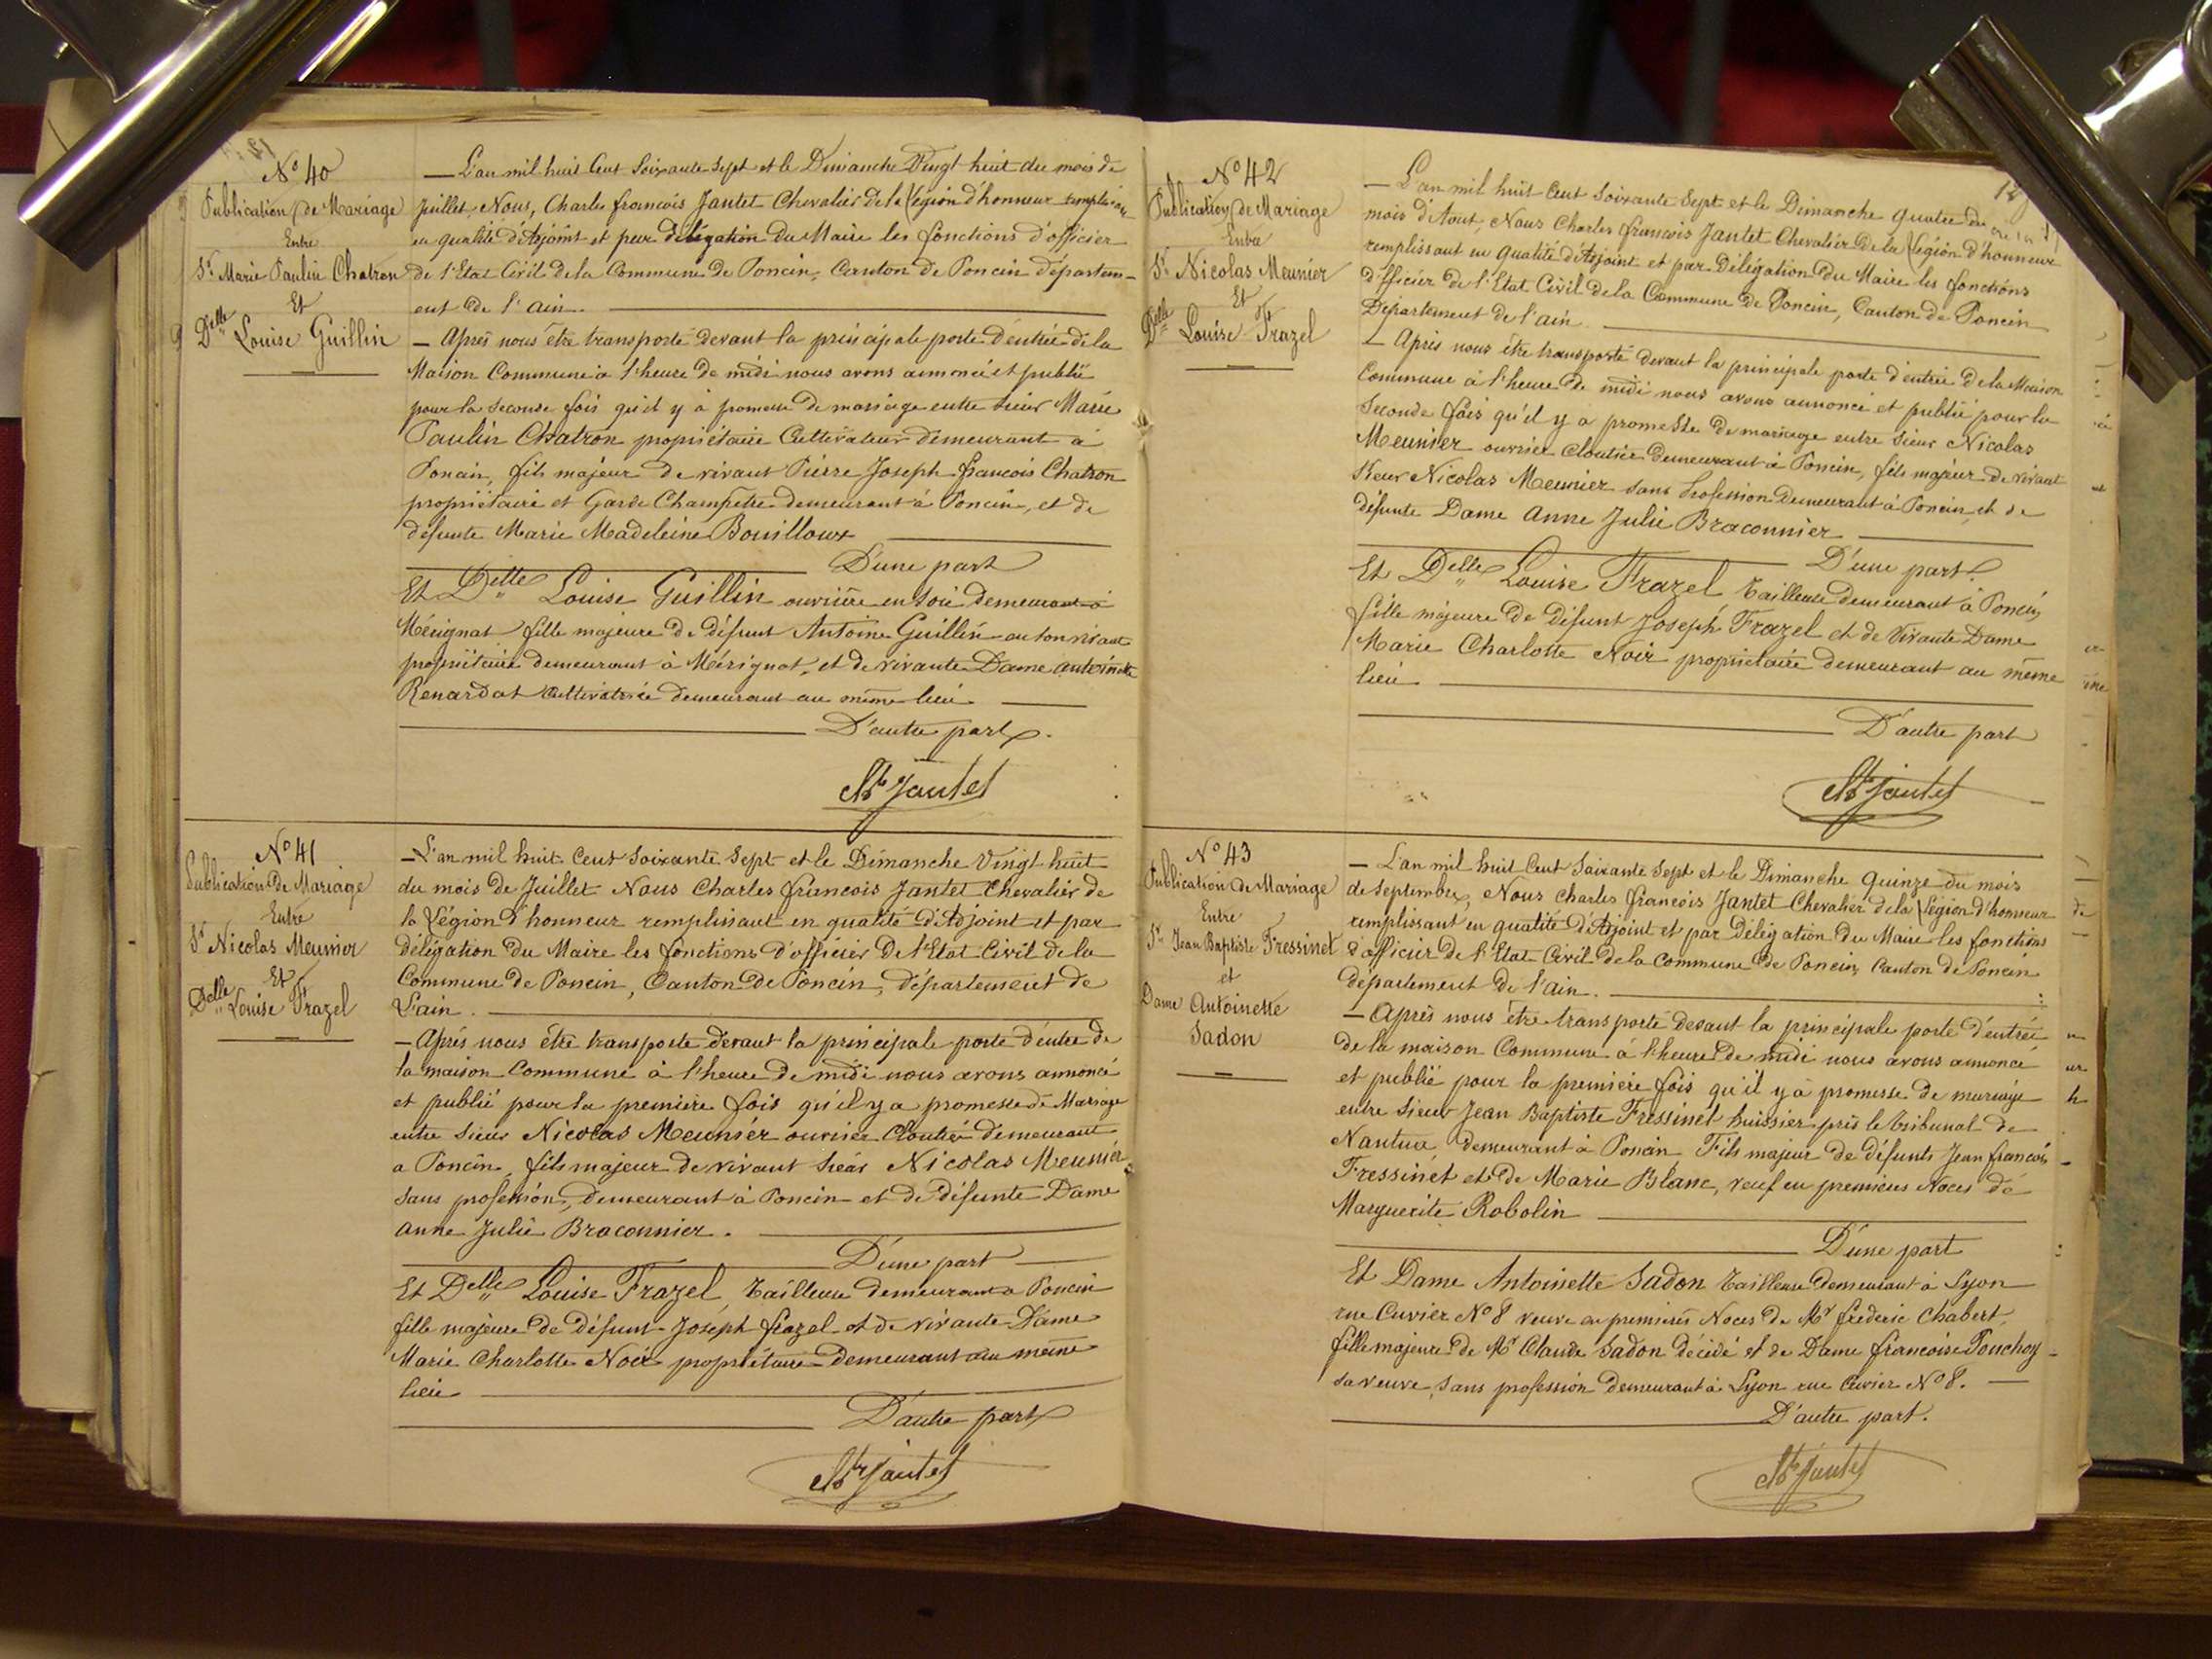 No 40
Publication de Mariage
Entre
Sr Marie Paulin Chatron
Et
Delle Louise Guillin
— L'an mil huit Cent Soixante Sept et le Dimanche Vingt huit du mois de
Juillet, Nous, Charles francois Jantet Chevalier de la Légion d'honneur remplissant
en qualité d'Adjoint et par délégation du Maire les fonctions d'officier
de l'Etat Civil de la Commune de Poncin, Canton de Poncin départem-
ent de l'ain.
— Après nous être transporté devant la principale porte d'entrée de la
Maison Commune à l'heure de midi nous avons annoncé et publié
pour la seconde fois qu'il y à promesse de mariage entre sieur Marie
Paulin Chatron propriétaire Cultivateur demeurant à
Poncin, fils majeur de vivant Pierre Joseph francois Chatron
propriétaire et Garde Champêtre demeurant à Poncin, et de
défunte Marie Madeleine Bouilloux
D'une part
Et Delle Louise Guillin ouvrière en soie demeurant à
Mérignat fille majeure de défunt Antoine Guillin en son vivant
propriétaire demeurant à Mérignat, et de vivante Dame antoinette
Renardat Cultivatrice demeurant au même lieu.
D'autre part.
Ch Jantet
No 41
Publication de Mariage
Entre
Sr Nicolas Meunier
Et
Delle Louise Frazel
— L'an mil huit Cent Soixante Sept et le Dimanche Vingt huit
du mois de Juillet Nous Charles francois Jantet Chevalier de
la Légion d'honneur remplissant en qualité d'Adjoint et par
délégation du Maire les fonctions d'officier de l'Etat Civil de la
Commune de Poncin, Canton de Poncin, département de
L'ain.
— Après nous être transporté devant la principale porte d'entrée de
la maison Commune à l'heure de midi nous avons annoncé
et publié pour la premiere fois qu'il y a promesse de Mariage
entre sieur Nicolas Meunier ouvrier Cloutier demeurant
a Poncin, fils majeur de vivant sieur Nicolas Meunier
sans profession, demeurant à Poncin et de défunte Dame
anne Julie Braconnier.
D'une part
Et Delle Louise Frazel, Tailleuse demeurant a Poncin
fille majeure de défunt Joseph frazel et de vivante Dame
Marie Charlotte Noir propriétaire demeurant au même
lieu
D'autre part
Ch Jantet
No 42
Publication de Mariage
Entre
Sr Nicolas Meunier
Et
Delle Louise Frazel
— L'an mil huit Cent Soixante Sept et le Dimanche quatre du
mois d'Aout, Nous Charles francois Jantet Chevalier de la Légion d'honneur
remplissant en qualité d'Adjoint et par Délégation du Maire les fonctions
d'officier de l'Etat Civil de la Commune de Poncin, Canton de Poncin
Département de l'ain.
— Après nous être transporté devant la principale porte d'entrée de la Maison
Commune à l'heure de midi nous avons annoncé et publié pour la
Seconde fois qu'il y a promesse de mariage entre sieur Nicolas
Meunier ouvrier Cloutier demeurant à Poncin, fils majeur de vivant
sieur Nicolas Meunier sans profession demeurant à Poncin et de
défunte Dame Anne Julie Braconnier
D'une part.
Et Delle Louise Frazel Tailleuse demeurant à Poncin,
fille majeure de Défunt Joseph Frazel et de Vivante Dame
Marie Charlotte Noir propriétaire demeurant au même
lieu
D'autre part
Ch Jantet
No 43
Publication de Mariage
Entre
Sr Jean Baptiste Fressinet
et
Dame Antoinette
Sadon
— L'an mil huit Cent Soixante Sept et le Dimanche Quinze du mois
de Septembre, Nous Charles francois Jantet Chevalier de la Légion d'honneur
remplissant en qualité d'Adjoint et par Délégation du Maire les fonctions
d'officier de l'Etat Civil de la Commune de Poncin, Canton de Poncin
département de l'ain.
— Après nous être transporté devant la principale porte d'entrée
de la maison Commune à l'heure de midi nous avons annoncé
et publié pour la première fois qu'il y à promesse de mariage
entre sieur Jean Baptiste Fressinet huissier près le tribunal de
Nantua, demeurant à Poncin Fils majeur de défunts Jean francois
Fressinet et de Marie Blanc, veuf en premieres Noces de
Marguerite Robolin
D'une part
Et Dame Antoinette Sadon Tailleuse demeurant à Lyon
rue Cuvier No 8 veuve en premières Noces de Mr frederic Chabert,
fille majeure de Mr Claude Sadon décédé et de Dame francoise Ponchoy
sa veuve, sans profession demeurant à Lyon rue Cuvier No 8.
D'autre part.
Ch Jantet